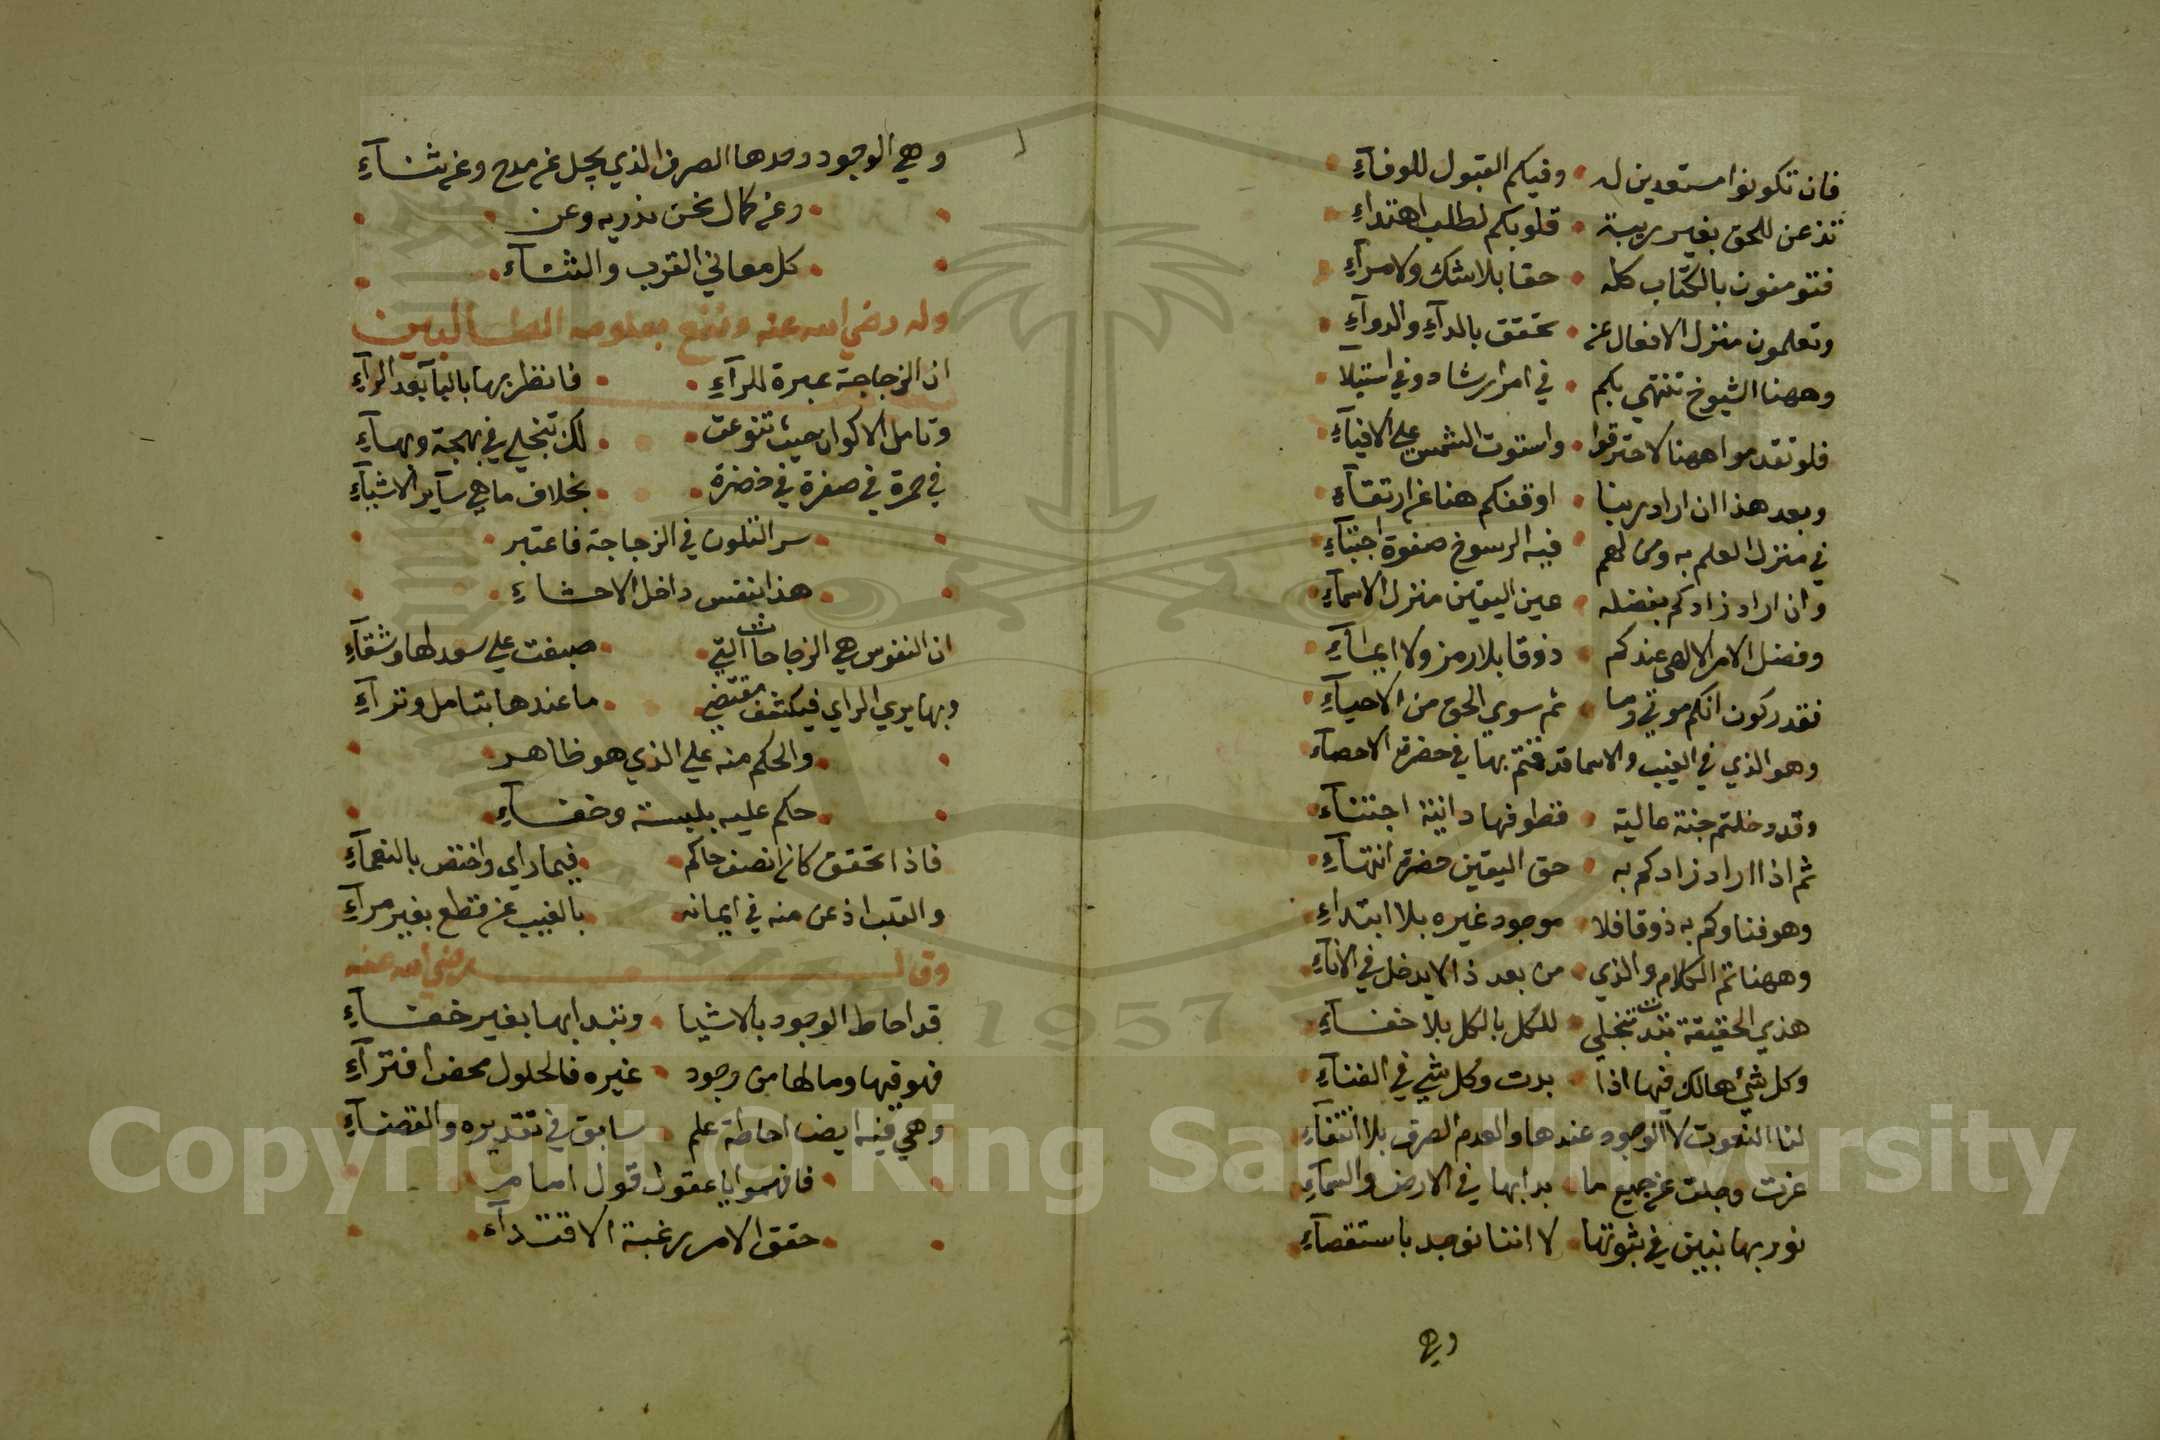 فان تكونوا مستعدين له • وفيكم القبول للوفآءِ
تذعن للحق بغير ريبة • قلوبكم لطلب اهتداءِ
فتؤمنون بالكتاب كله • حقا بلا شك ولا مرآءِ
وتعلمون منزل الافعال عن • تحقق بالدآءِ والدوآءِ
وههنا الشيوخ تنتهي بكم • في امر ارشاد وفي استيلآ
فلو تقدموا ههنا لاحترقوا • واستوت الشمس علي الافيآءِ
وبعد هذا ان اراد ربنا • اوقفكم هنا عن ارتقآءِ
في منزل العلم به ومن لهم • فيه الرسوخ صفوة اجتبآءِ
وان اراد زادكم بفضله • عين اليقين منزل الاسمآءِ
وفضل الامر الالهي عندكم • ذوقا بلا رمز ولا ايمآءِ
فقدركون انكم موتي وما • ثم سوي الحق من الاحيآءِ
وهو الذي في الغيب والاسما قد قمتم بها في حضرة الاحصآءِ
وقد دخلتم جنة عالية • قطوفها دانية اجتنآءِ
ثم اذا اراد زادكم به • حق اليقين حضرة انتهآءِ
وهو فناوكم به ذوقا فلا • موجود غيره بلا ابتداءِ
وههنا تم الكلام والذي • من بعد ذا لا يدخل في الانآءِ
هذي الحقيقة بدت تنجلي • للكل بالكل بلا خفآءِ
وكل شيء هالك فيها اذا • بدت وكل شي في الفنآءِ
لنا النعوت لا الوجود عندها والعدم الصرف بلا انتفآءِ
عزت وجلت عن جميع ما • بدا بها في الارض والسمآءِ
نور بها نبين في ثبوتها • لا اننا نوجد باستقصآءِ
وهي
وهي الوجود وحدها الصرف الذي يجل عن مدح وعن ثنآءِ
وعن كمال نحن ندريه وعن
كل معاني القرب والتنآءِ
وله رضي الله عنه ونفع بعلومه الطالبين
ان الزجاجة عبرة للرآءِ • فانظر بها باليآ بعد الرآءِ
وتامل الاكوان حيث تنوعت • لك تنجلي في بهجة وبهآءِ
في حمرة في صفرة في خضرة • بخلاف ما هي ساير الاشيآءِ
سر التلون في الزجاجة فاعتبر
هذا بنفس داخل الاحشاءِ
ان النفوس هي الزجاجات التي • صبغت علي سعد لها وشقآءِ
وبها يري الراي فيكشف مقتضي • ما عندها بتامل وترآءِ
والحكم منه علي الذي هو ظاهر
حكم عليه بلبسة وخفآءِ
فاذا تحقق كان انصف حاكم • فيما راي واختص بالنعمآءِ
والقلب اذعن منه في ايمانه • بالغيب عن قطع بغير مرآءِ
وقال رضي الله عنه
قد احاط الوجود بالاشيا • وتبدا بها بغير خفآءِ
فهو فيها وما لها من وجود • غيره فالحلول محض افترآءِ
وهي فيه ايضا احاطة علم • سابق في تقديره والقضآءِ
فافهموا يا عقول قول امام
حقق الامر رغبة الاقتدآءِ
Copyright © King Saud University
1957